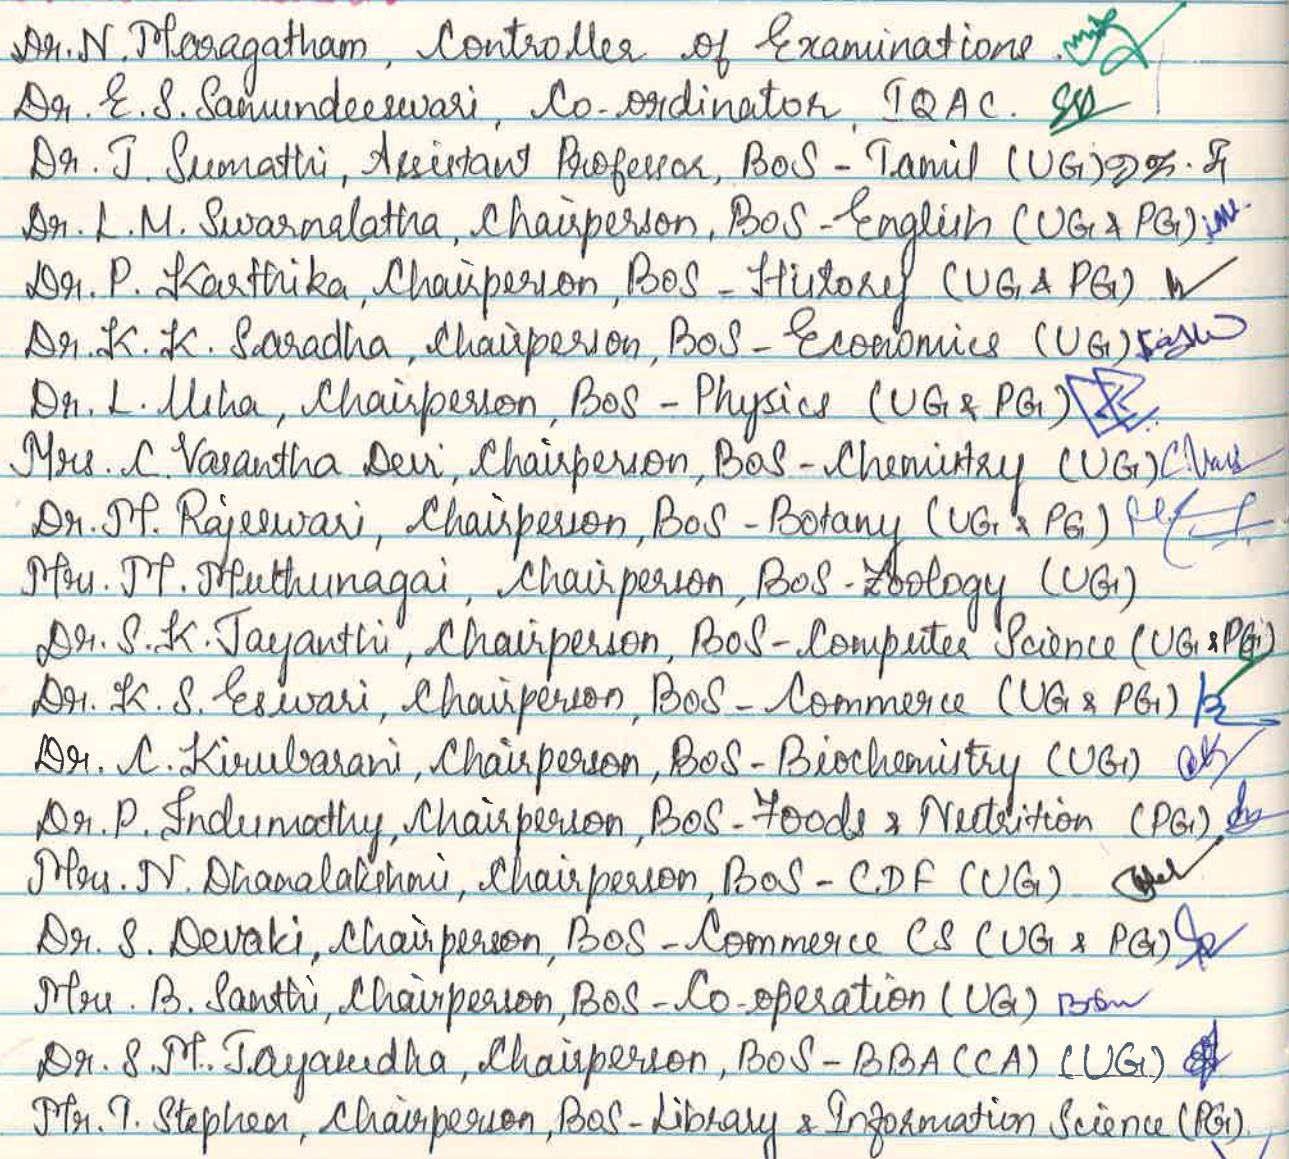 Dr. N. Maragatham, Controller of Examinations.
Dr. E. S. Samundeeswari, Co-ordinator, IQAC.
Dr. J. Sumathi, Assistant Professor, BoS - Tamil (UG)
Dr. L. M. Swarnalatha, Chairperson, BoS - English (UG & PG)
Dr. P. Karthika, Chairperson, BoS - History (UG & PG)
Dr. K. K. Saradha, Chairperson, BoS - Economics (UG)
Dr. L. Usha, Chairperson, BoS - Physics (UG & PG)
Mrs. C Vasantha Devi, Chairperson, BoS - Chemistry (UG)
Dr. M. Rajeswari, Chairperson, BoS - Botany (UG & PG)
Mrs. M. Muthunagai, Chairperson, BoS - Zoology (UG)
Dr. S. K. Jayanthi, Chairperson, BoS - Computer Science (UG & PG)
Dr. K. S. Eswari, Chairperson, BoS - Commerce (UG & PG)
Dr. C. Kirubarani, Chairperson, BoS - Biochemistry (UG)
Dr. P. Indumathy, Chairperson, BoS - Foods & Nutrition (PG)
Mrs. N. Dhanalakshmi, Chairperson, BoS - CDF (UG)
Dr. S. Devaki, Chairperson, BoS - Commerce CS (UG & PG)
Mrs. B. Santhi, Chairperson, BoS - Co-operation (UG)
Dr. S. M. Jayasudha, Chairperson, BoS - BBA (CA) (UG)
Mr. T. Stephen, Chairperson, BoS - Library & Information Science (PG).